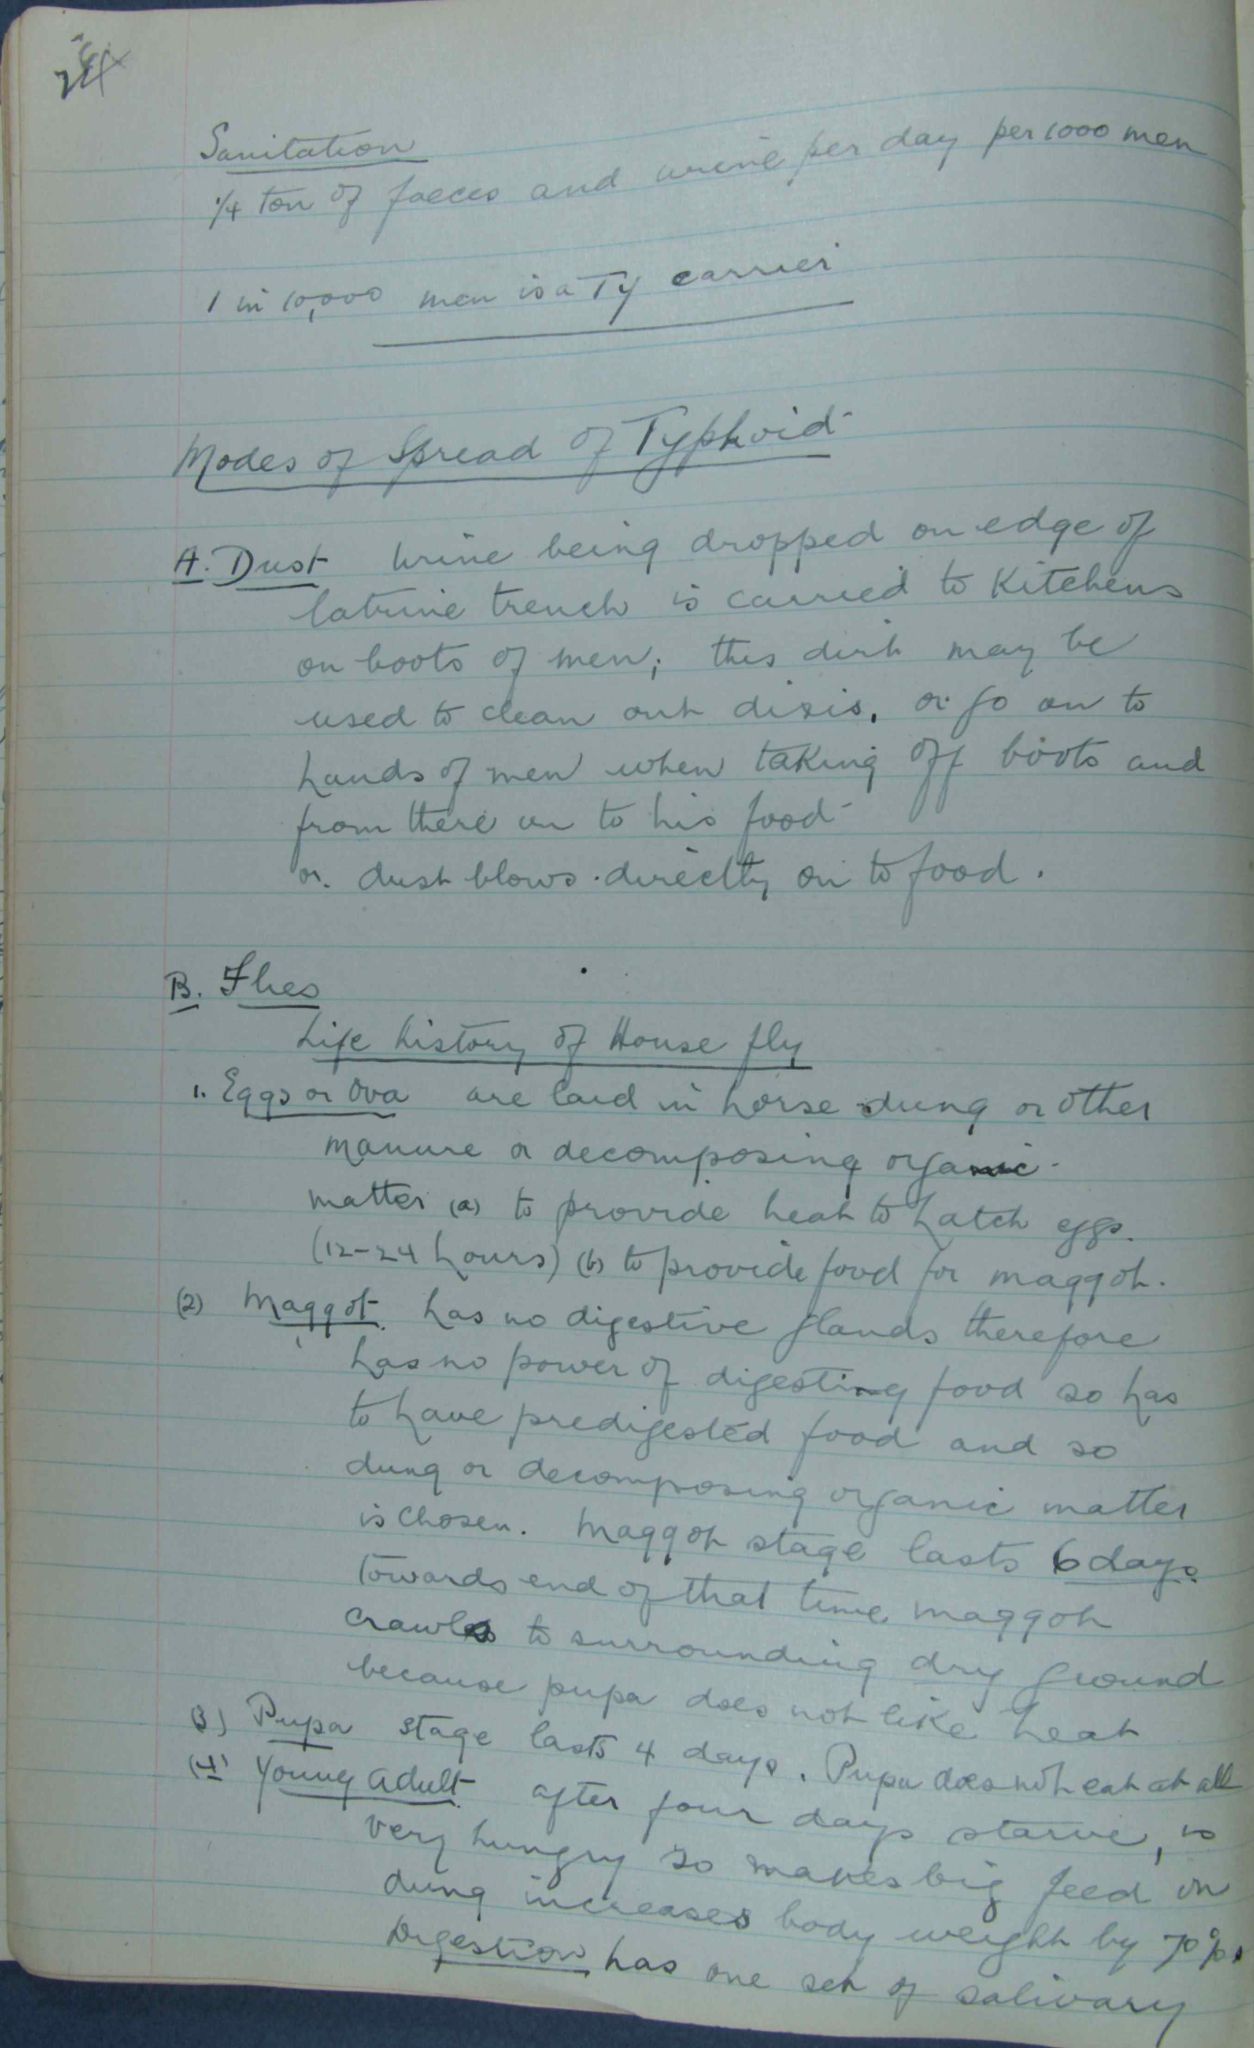 Sanitation
1/4 ton of faeces and urine per day per 1000 men
1 in 10,000 men is a Ty carrier
Modes of Spread of Typhoid
A. Dust Urine being dropped on edge of
latrine trench is carried to Kitchens
on boots of men; this dirt may be
used to clean out dixis, or go on to
hands of men when taking off boots and
from there on to his food
or dust blows directly on to food.
B. Flies
Life history of House fly
1. Eggs or Ova are laid in horse dung or other
manure or decomposing organic
matter (a) to provide heat to hatch eggs.
(12-24 hours) (b) to provide food for maggot.
(2) Maggot has no digestive glands therefore
has no power of digesting food so has
to have predigested food and so
dung or decomposing organic matter
is chosen. Maggot stage lasts 6 days.
Towards end of that time maggot
crawls to surrounding dry ground
because pupa does not like heat
(3) Pupa stage lasts 4 days. Pupa does not eat at all
(4) Young adult after four days starve, is
very hungry so makes big feed on
dung increases body weight by 70%.
Digestion has one set of salivary